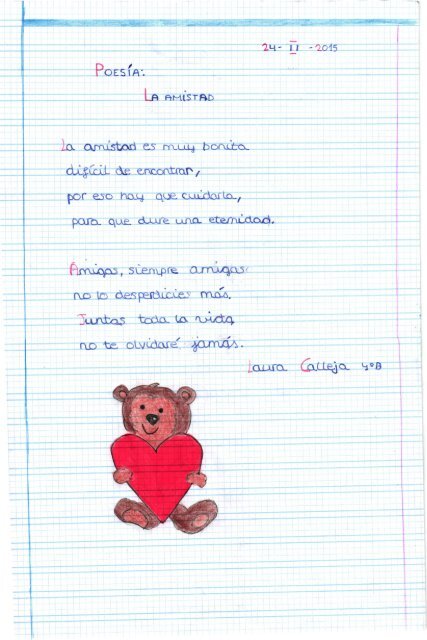 24-II-2015
POESÍA:
LA AMISTAD
La amistad es muy bonita
difícil de encontrar,
por eso hay que cuidarla,
para que dure una eternidad.
Amigas, siempre amigas
no lo desperdicies más.
Juntas toda la vida
no te olvidaré jamás.
Laura Calleja 4ºB